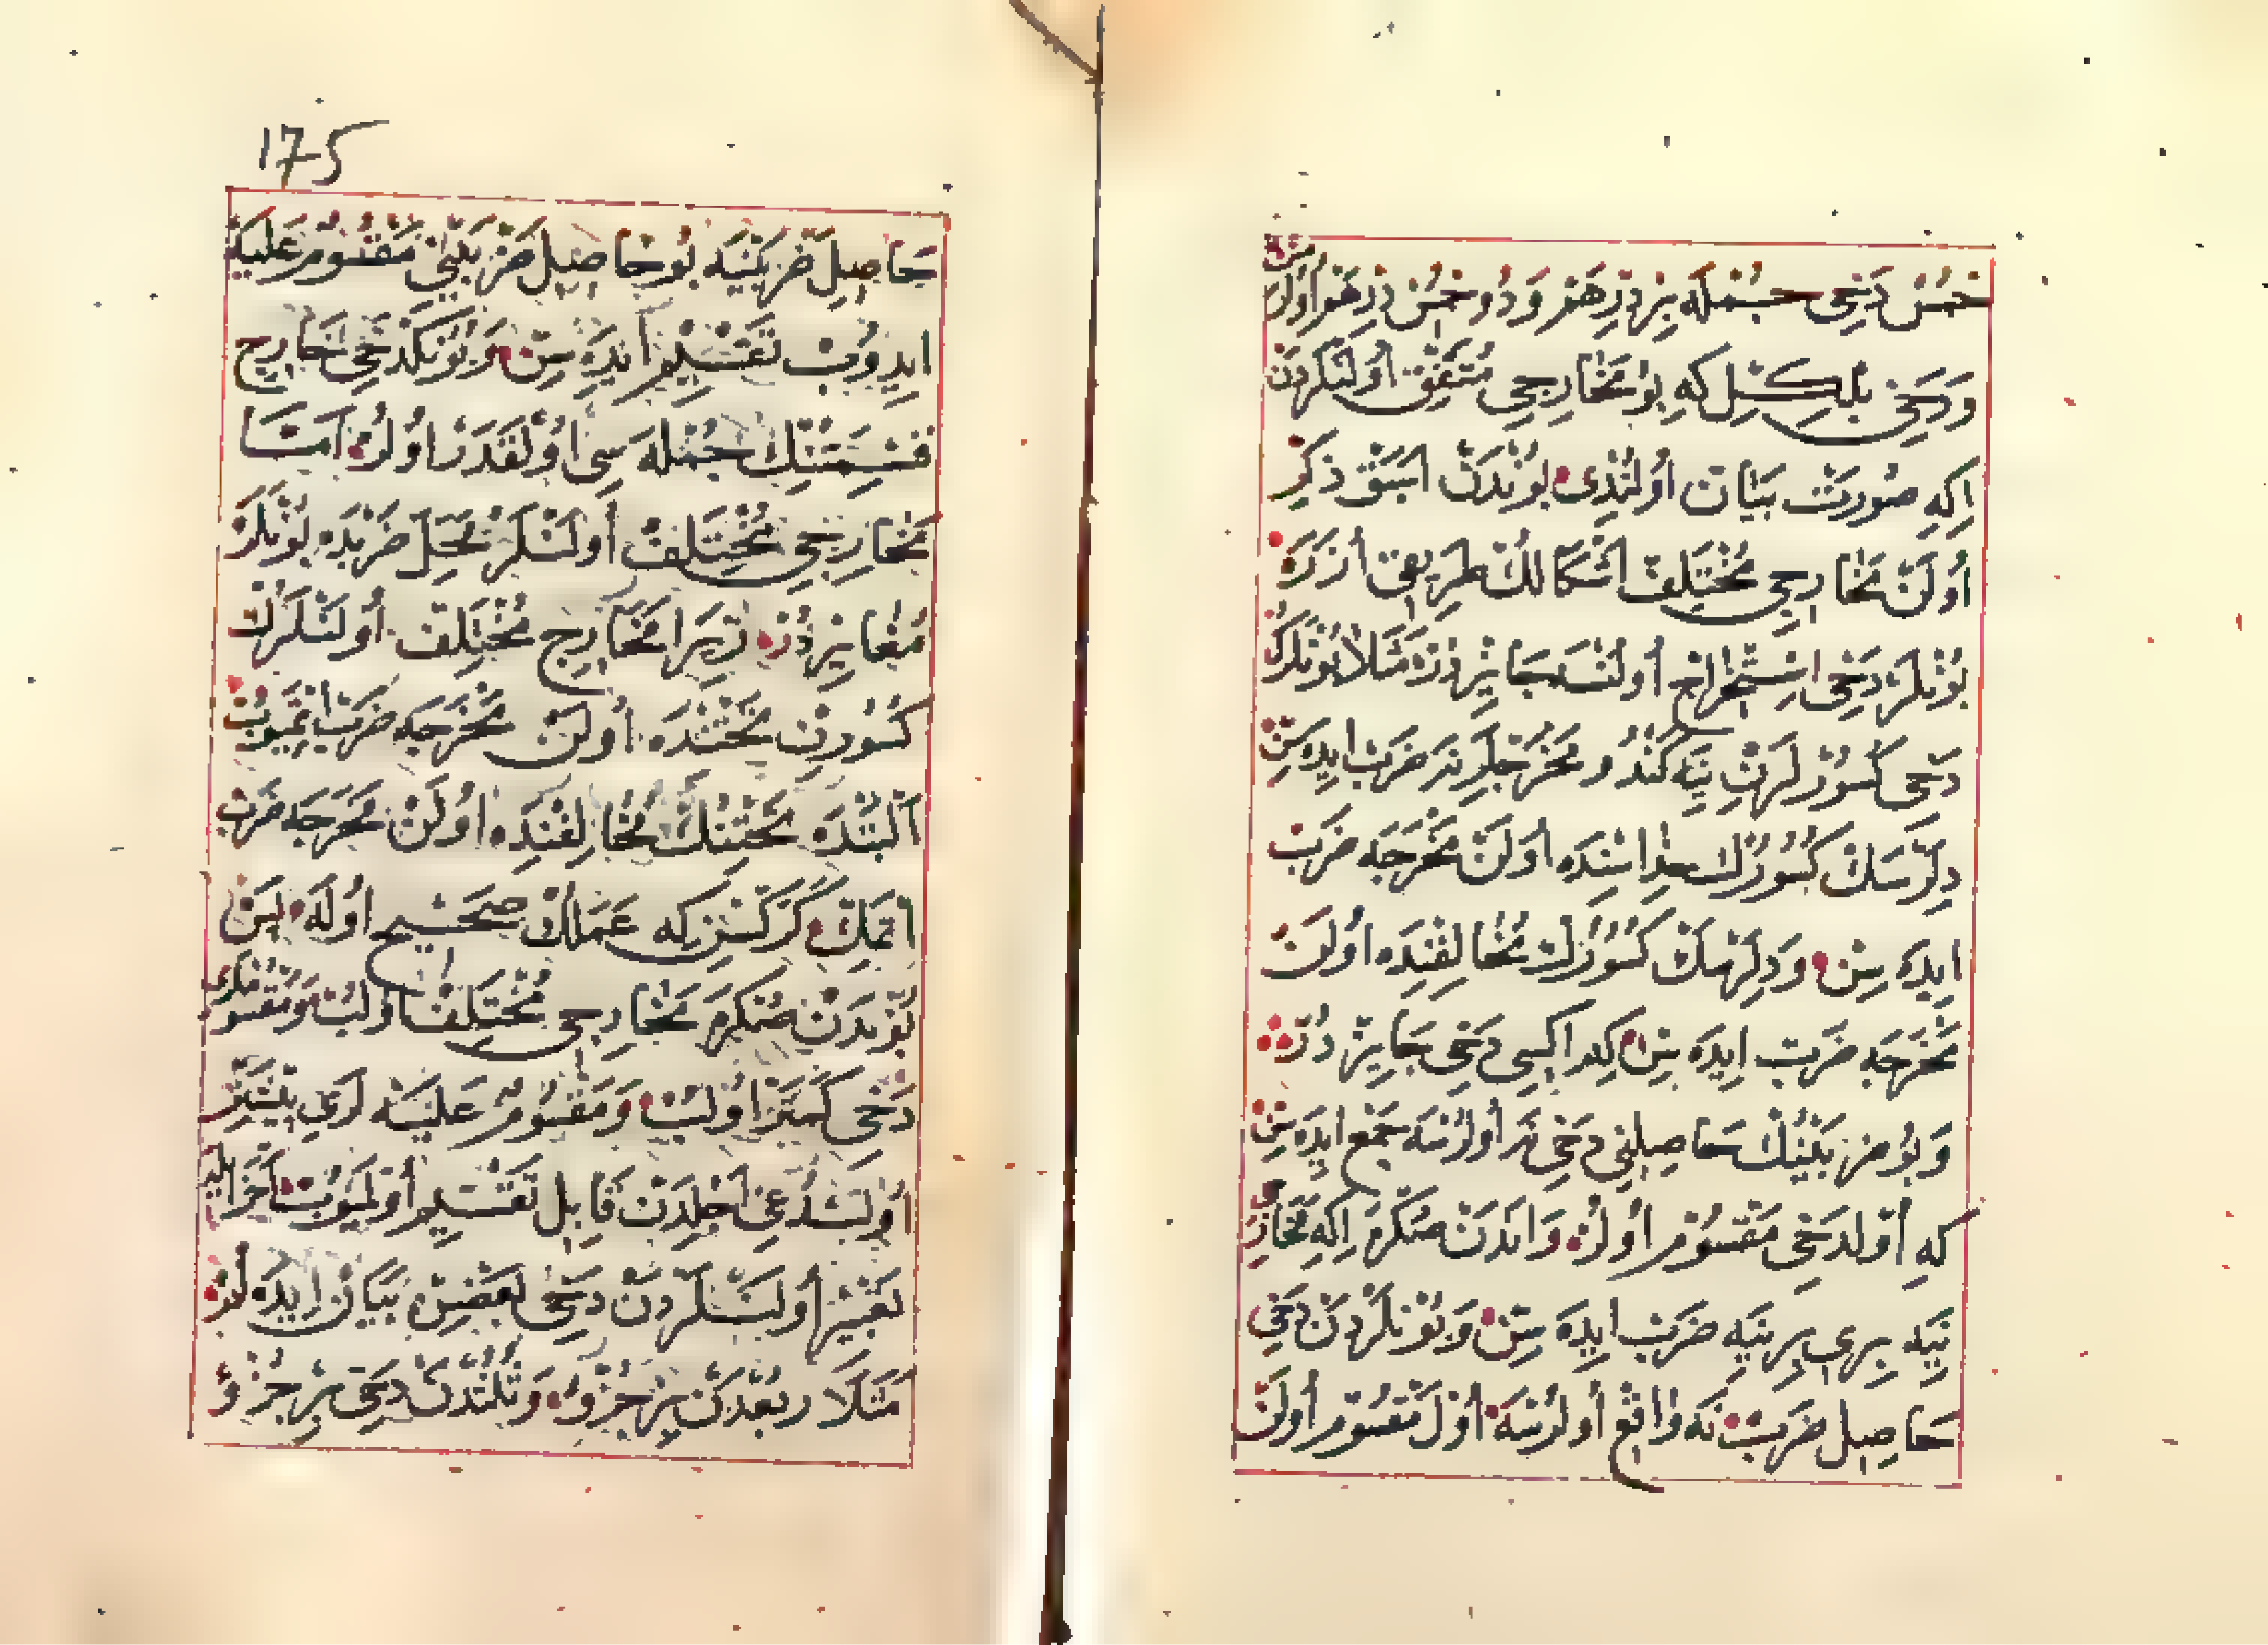 خمس دخی جمله بر درهم و دو خمس درهم اولور
ودخی بلکل که بو مخارجی متفق اولنلردن
اکه صورت بیان اولندی بوندن اسبق ذکر
اولن مخارجی مختلف اشکالك طریقی اوزره
بونلر دخی استخراج اولنسه جایزدر مثلا بونلرك
دخی کسورلرن ینه کندو مخرجلرنه ضرب ایده سن
دلرسك کسورك حذاسنده اولن مخرجه ضرب
ایده سن ودلرسك کسورك مخالفنده اولن
مخرجه ضرب ایده سن کم اکسی دخی جایزدر
وبو ضربینك حاصلنی دخی نه اولورسه جمع ایده سن
که اول دخی مقسوم اولر واندن صکره اکه مخارج
ینه بری برینه ضرب ایده سن وبونلردن دخی
حاصل ضرب نه واقع اولورسه اول مقسوم اولن
175
حاصل ضربینه بو حاصل ضربینی مقسوم علیه
ایدوب تقسیم ایده سن وبونکدخی خارج
قسمتنك جمله سی اولقدر اولر اما
مخارجی مختلف اولنلر محل ضربده بونلر
مغایردر زیرا مخارج مختلف اولنلرك
کسورن تحتنده اولن مخرجه ضرب اتمیوب
البتده تحتنك مخالفنده اولن مخرجه ضرب
اتمك کرکسن که عملك صحیح اوله لکن
بوندن صکره مخارجی مختلف اولب ومقسوملری
دخی کمتر اولب ومقسوم علیه لری بیشتر
اولدغی اجلدن قابل تقسیم اولمیوب
تغییر اولنسلردن دخی بعضن بیان ایده لر
مثلا ربعدن بر جزو وثلثدن دخی بر جزؤ